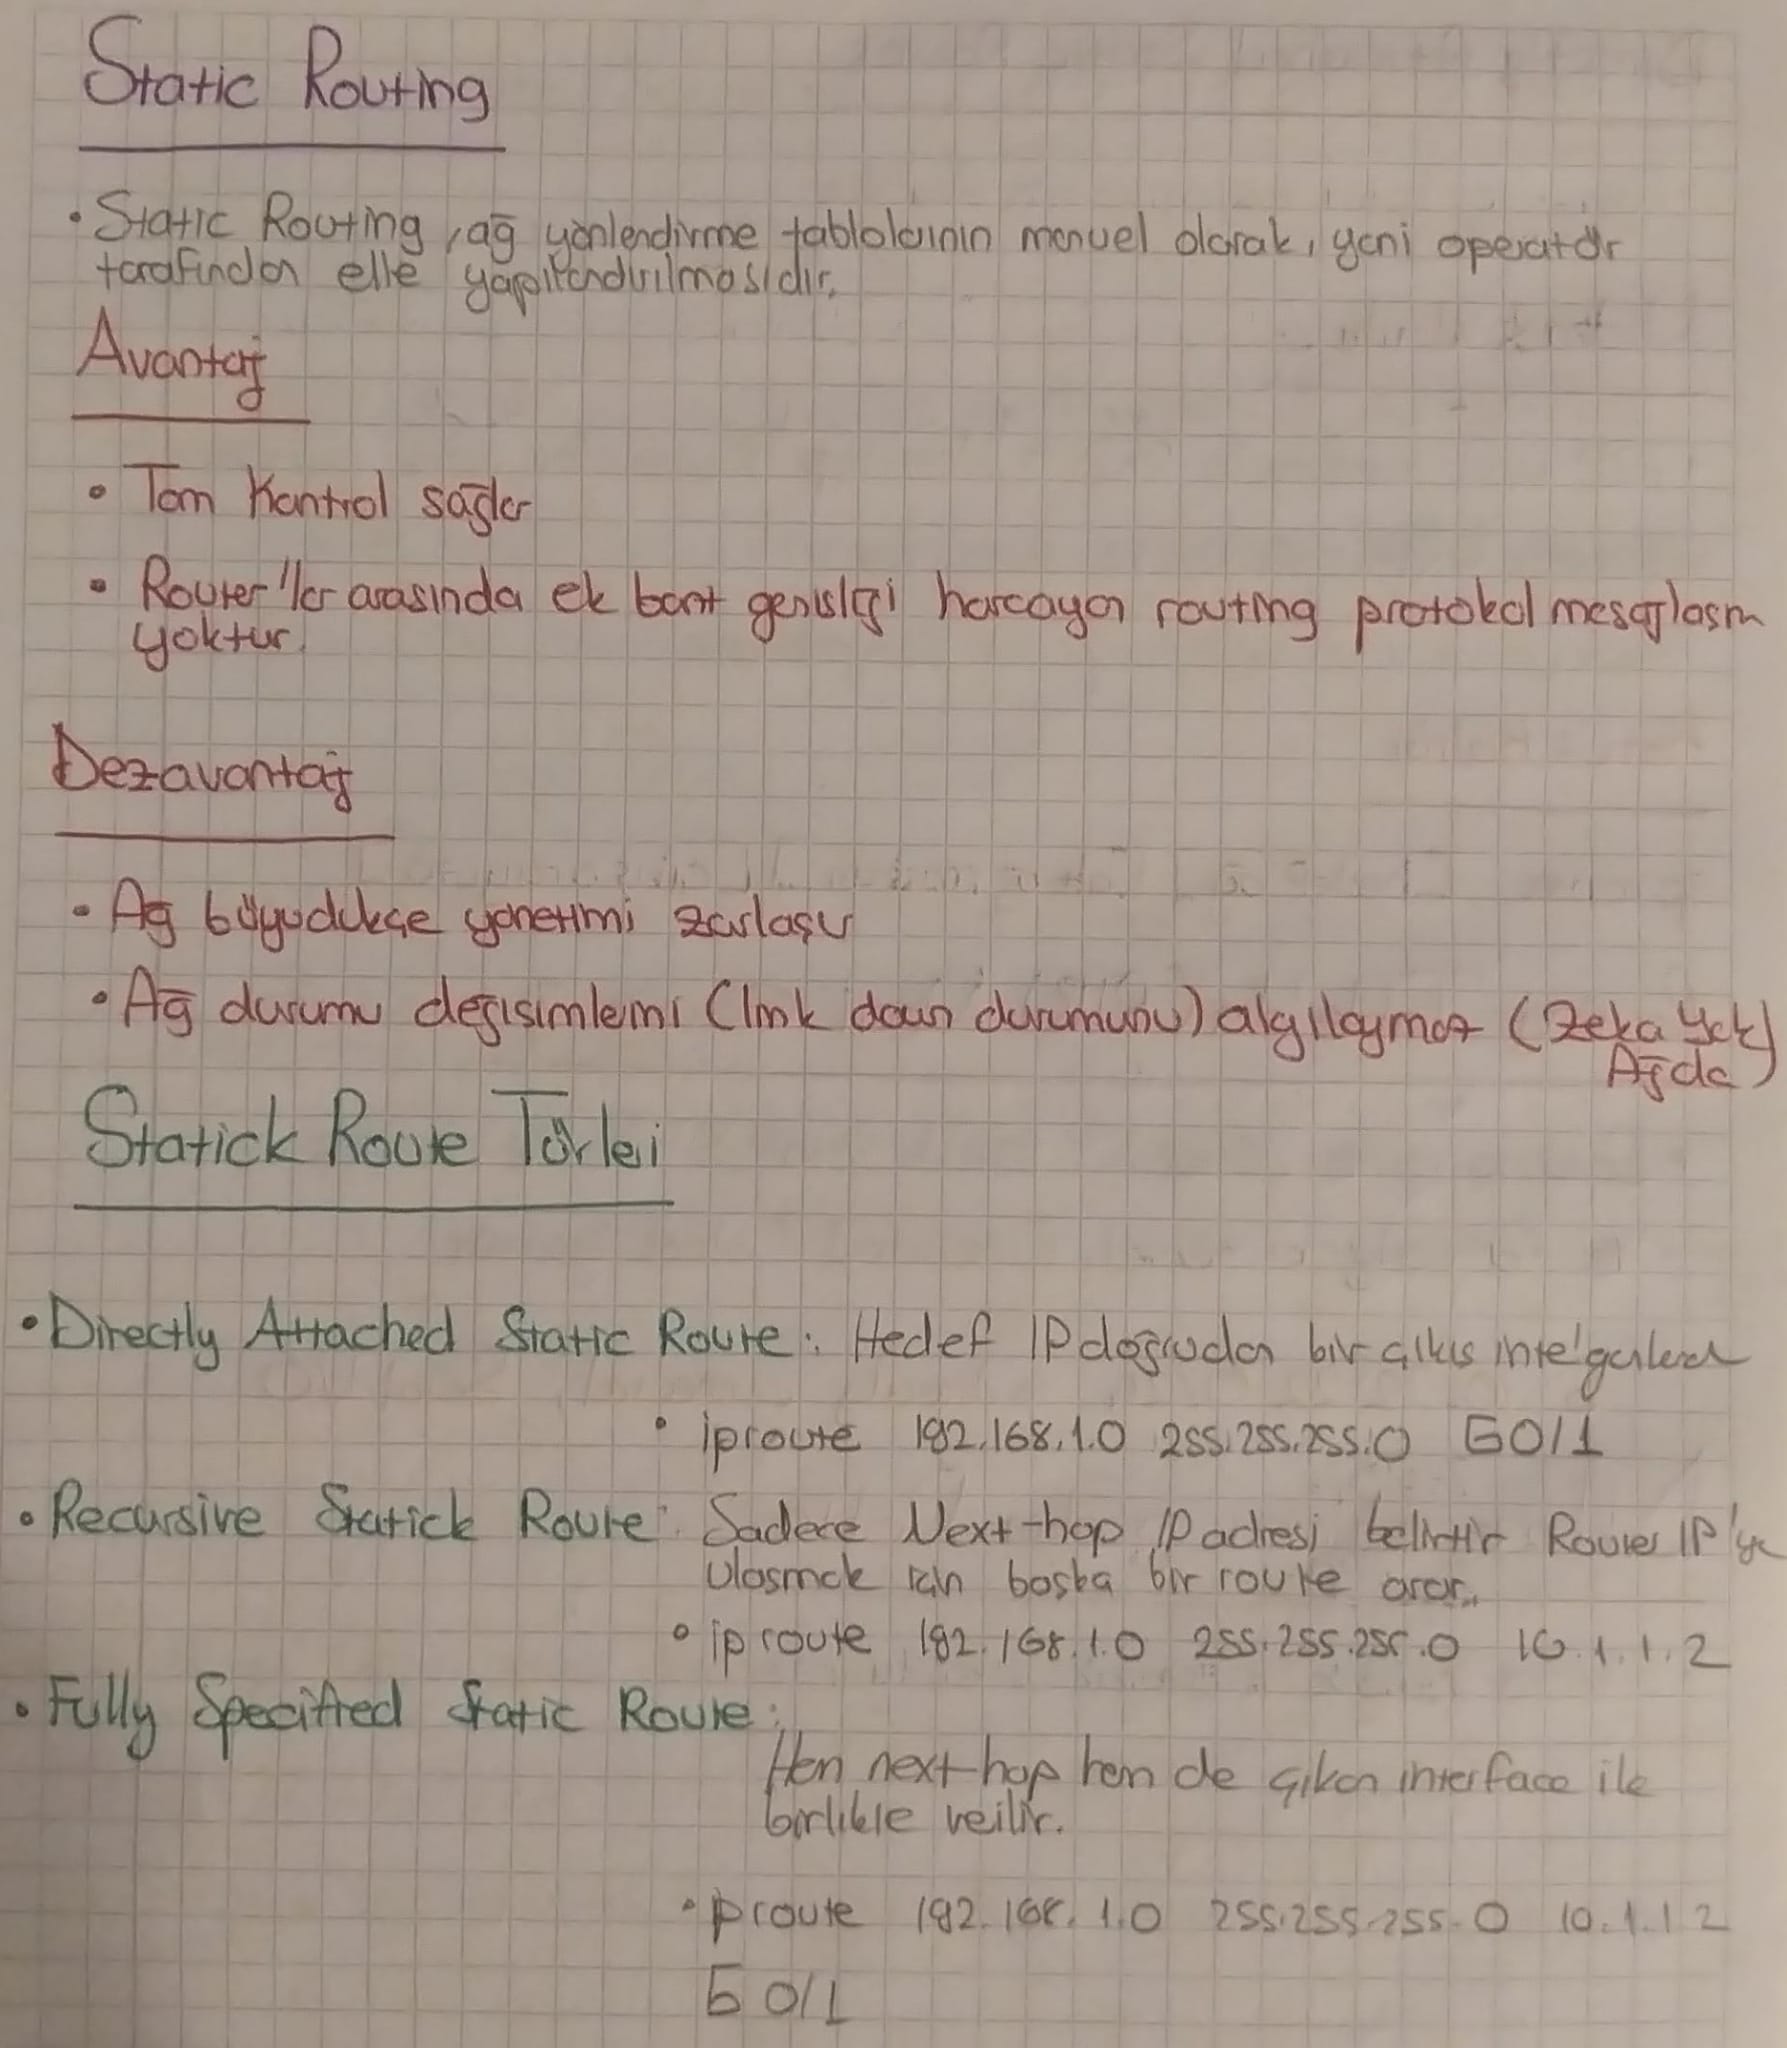 Static Routing
• Static Routing, ağ yönlendirme tablolarının manuel olarak, yani operatör
tarafından elle yapılandırılmasıdır.
Avantaj
• Tam Kontrol sağlar
• Router'lar arasında ek bant genişlği harcayan routing protokol mesajlaşm
yoktur.
Dezavantaj
• Ağ büyüdükçe yönetimi zorlaşır
• Ağ durumu değişimlerini (link down durumunu) algılaymaz (Zeka Yok
Ağda)
Statick Route Türleri
• Directly Attached Static Route: Hedef IP doğrudan bir çıkış
• iproute 192.168.1.0 255.255.255.0 G0/1
• Recursive Statick Route: Sadece Next-hop IP adresi belirtir Router IP'ye
Ulaşmak için başka bir route arar..
• ip route 192.168.1.0 255.255.255.0 10.1.1.2
• Fully Specified Static Route:
Hem next-hop hem de çıkan interface ile
birlikle verilir.
• iproute 192.168.1.0 255.255.255.0 10.1.1.2
G0/1